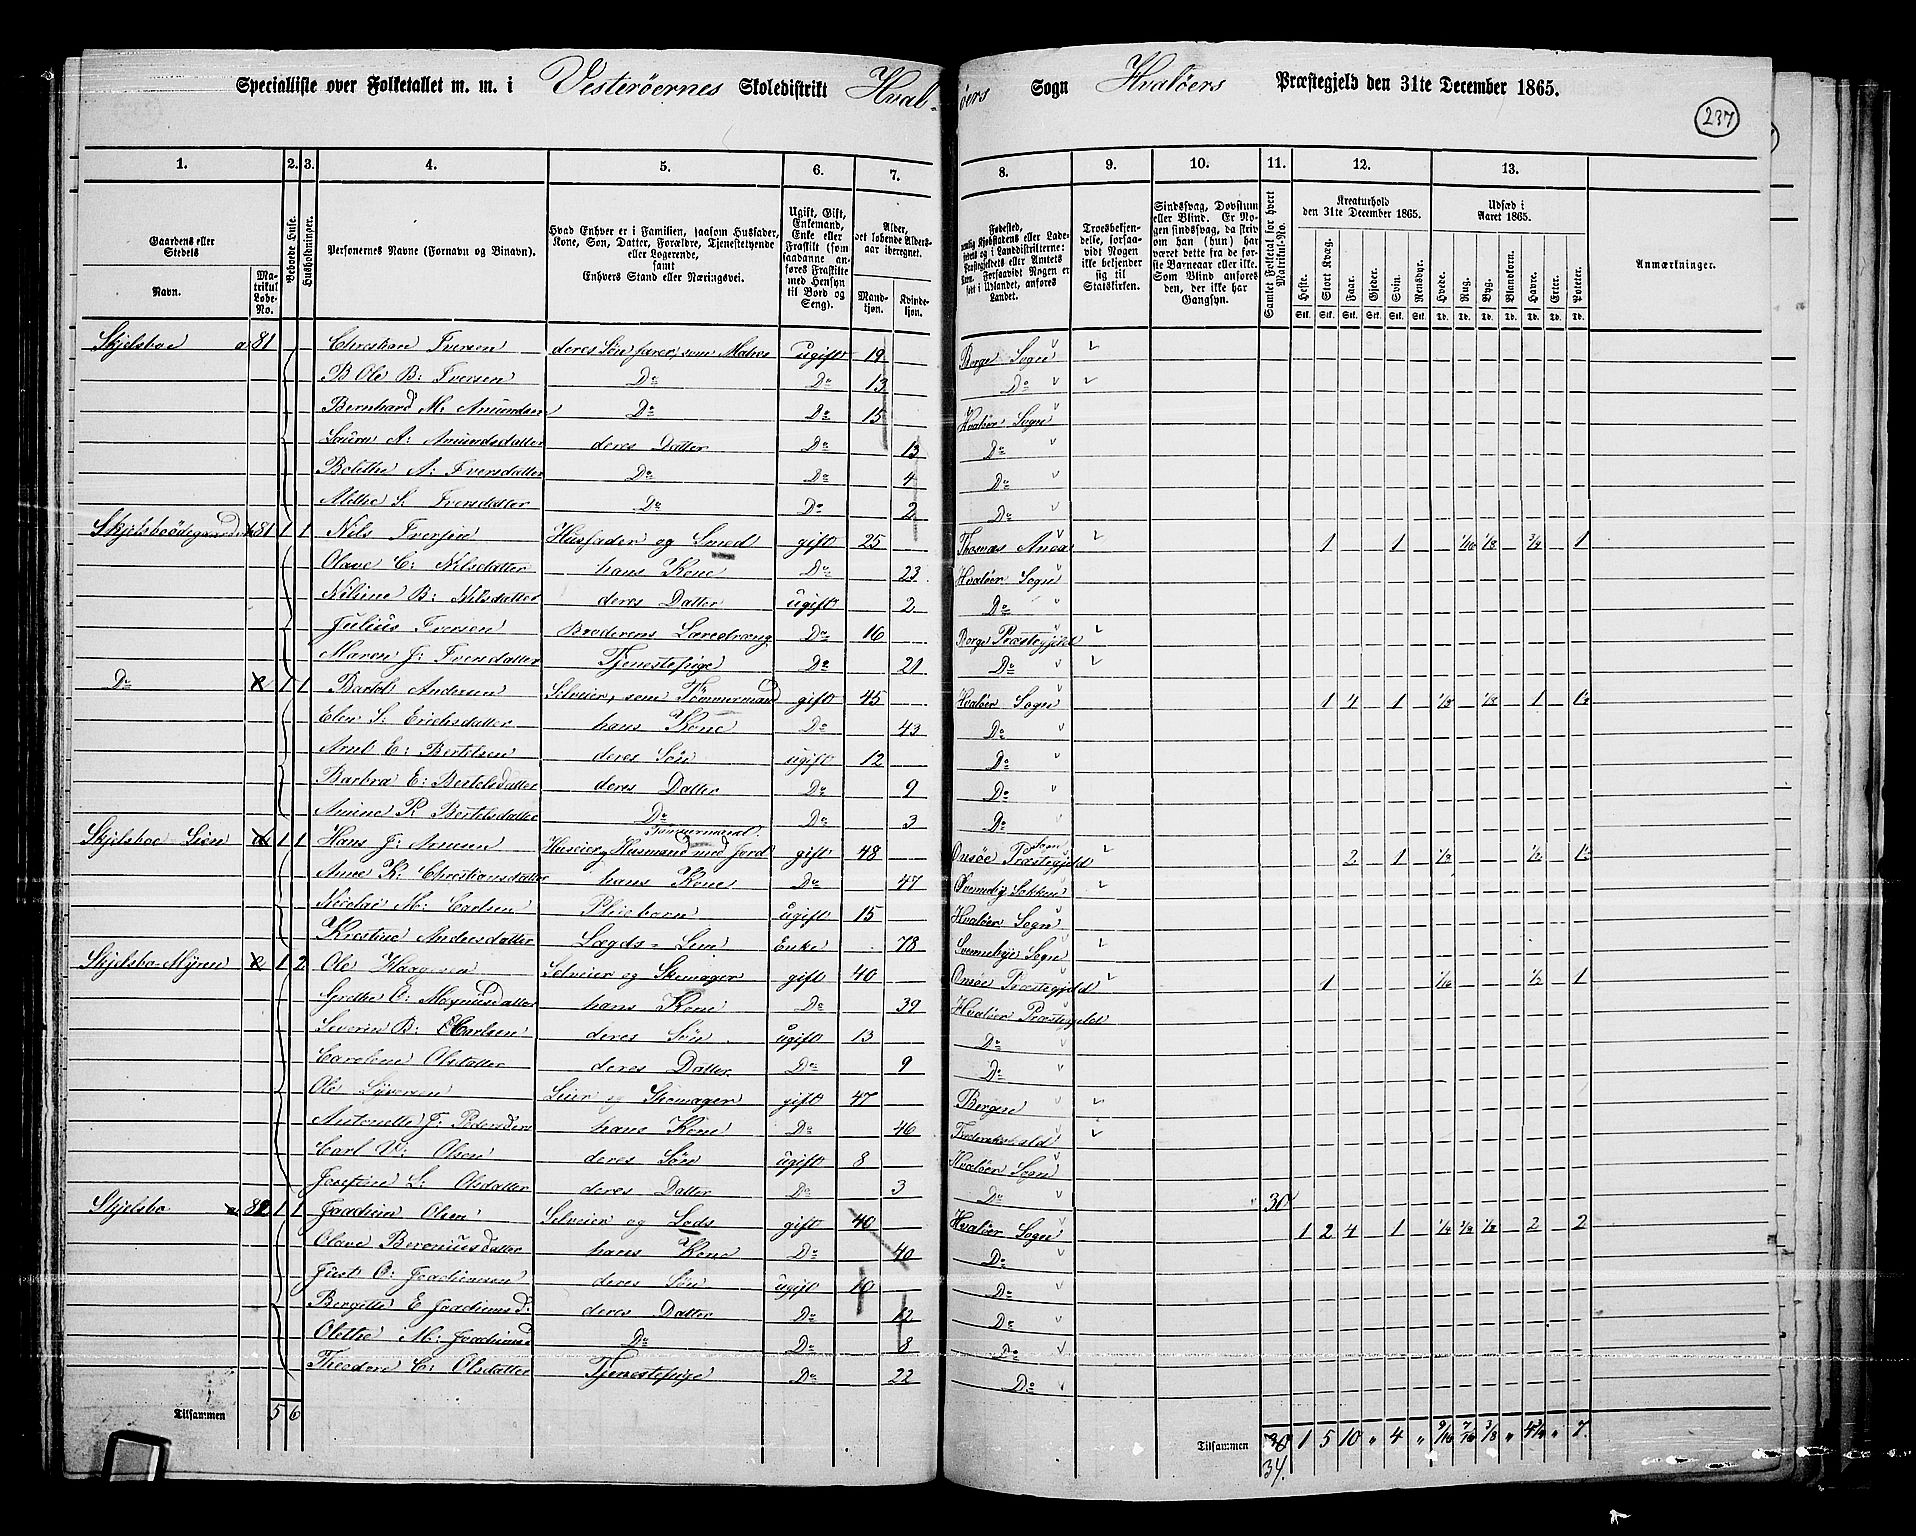 Specialliste over Folketallet m. m. i Vesteröernes Skoledistrikt Hvalöers Sogn Hvalöers Præstegjeld den 31te December 1865.
237
1. 2. 3. 4. 5. 6. 7. 8. 9. 10. 11. 12. 13.
Gaardens eller Stedets
Navn. Matrikul Løbe-No.
Beboede Huse.
Husholdninger.
Personernes Navne (Fornavn og Binavn).
Hvad Enhver er i Familien, saasom Husfader, Kone, Søn, Datter, Forældre, Tjenestetyende eller Logerende, samt Enhvers Stand eller Næringsvei.
Ugift, Gift, Enkemand, Enke eller Fraskilt (som saadanne anføres Fraskilte med Hensyn til Bord og Seng).
Alder, det løbende Aldersaar iberegnet.
Mandkjøn. Kvindekjøn.
Troesbekjendelse, forsaavidt Nogen ikke bekjender sig til Statskirken.
Sindssvag, Døvstum eller Blind. Er Nogen sindssvag, da skrives om han (hun) har været dette fra de første Barneaar eller ikke. Som Blind anføres den, der ikke har Gangsyn.
Samlet Folketal for hvert Matrikul-No.
Kreaturhold den 31te December 1865.
Heste. Stort Kvæg. Faar. Gjeder. Svin. Rensdyr.
Udsæd i Aaret 1865.
Hvede. Rug. Byg. Blandkorn. Havre. Erter. Poteter.
Anmærkninger.
Skjelsboe a 81 Christian Iversen deres Sön farer som Matros ugift 19 Borge Sogn
B Ole B: Iversen Do Do 13 Do
Bernhard M. Amundsen Do Do 15 Hvalöer Sogn
Laura A: Amundsdatter deres Datter Do 13 Do
Bolethe A: Iversdatter Do Do 4 Do
Alethe S. Iversdatter Do Do 2 Do
Skjelsboödegaard 81 1 1 Nils Iversen Husfader og Smed gift 25 Thomæs 1 1 1/16 1/8 3/4 1
Olave C. Nilsdatter hans Kone Do 23 Hvalöer Sogn
Niline B: Nilsdatter deres Datter ugift 2 Do
Julius Iversen Broderens Læredreng Do 16 Borge Præstegjeld
Maren J: Iversdatter Tjenestepige Do 21 Do
Do 1 1 Bartel Andersen Selveier, som Tömmermand gift 45 Hvalöer Sogn 1 4 1 1/8 1/8 1 1½
Elen S. Erichsdatter hans Kone Do 43 Do
Arnt E: Bertelsen deres Sön ugift 12 Do
Barbra E: Bertelsdatter deres Datter Do 9 Do
Amine P. Bertelsdatter Do Do 3 Do
Skjelsboe Lien 1 1 Hans J. Arnesen Huseier Husmand med Jord Tömmermand gift 48 Onsöe Præstegjeld Sogn 2 1 1/8 1/2 1½
Anne K. Christiansdatter hans Kone Do 47
Nicolai M: Carlsen Pleiebarn ugift 15 Hvalöer Sogn
Kristine Andersdatter Lægds-Lem Enke 78 Sogn
Skjelsbo-Myren 1 2 Ole Haagensen Selveier og Skomager gift 40 Onsöe Præstegjeld 1 1/16 1/2 1
Grethe O: Magnusdatter hans Kone Do 39 Hvalöer Præstegjeld
Severin B: Carlsen deres Sön ugift 13 Do
Caroline Olsdatter deres Datter Do 9 Do
Ole Syversen Leier og Skomager gift 47 Bergen
Antonette J. Pedersdere hans Kone Do 46 Frederikshald
Carl V: Olsen deres Sön ugift 8 Hvalöer Sogn
Josefine L. Olsdatter deres Datter Do 3 Do 30
Skjelsbo 82 1 1 Joachim Olsen Selveier og Lods gift 40 Hvalöer Sogn 1 2 4 1 1/4 1/8 2 2
Olave Beroniusdatter hans Kone Do 40 Do
Just O: Joachimsen deres Sön ugift 10 Do
Bergitte E Joachimsd: deres Datter Do 12 Do
Olethe M: Joachimsd Do Do 8 Do
Theodore C: Olsdatter Tjenestepige Do 22 Do
Tilsammen 5 6 Tilsammen 30 1 5 10 " 4 " 9/16 7/16 3/8 " 4¼ " 7.
34.